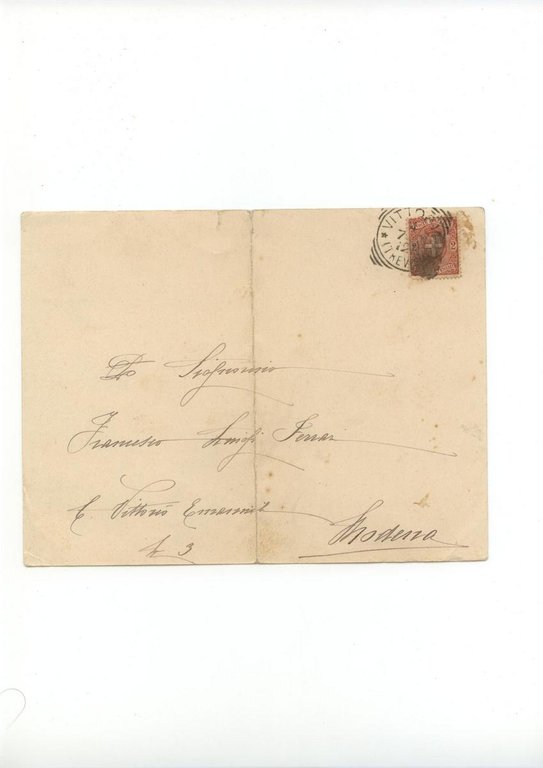 VITTO
7
12
(TREV
2
Signorino
Francesco Luigi Ferrari
C. Vittorio Emanuele
N 3
Modena